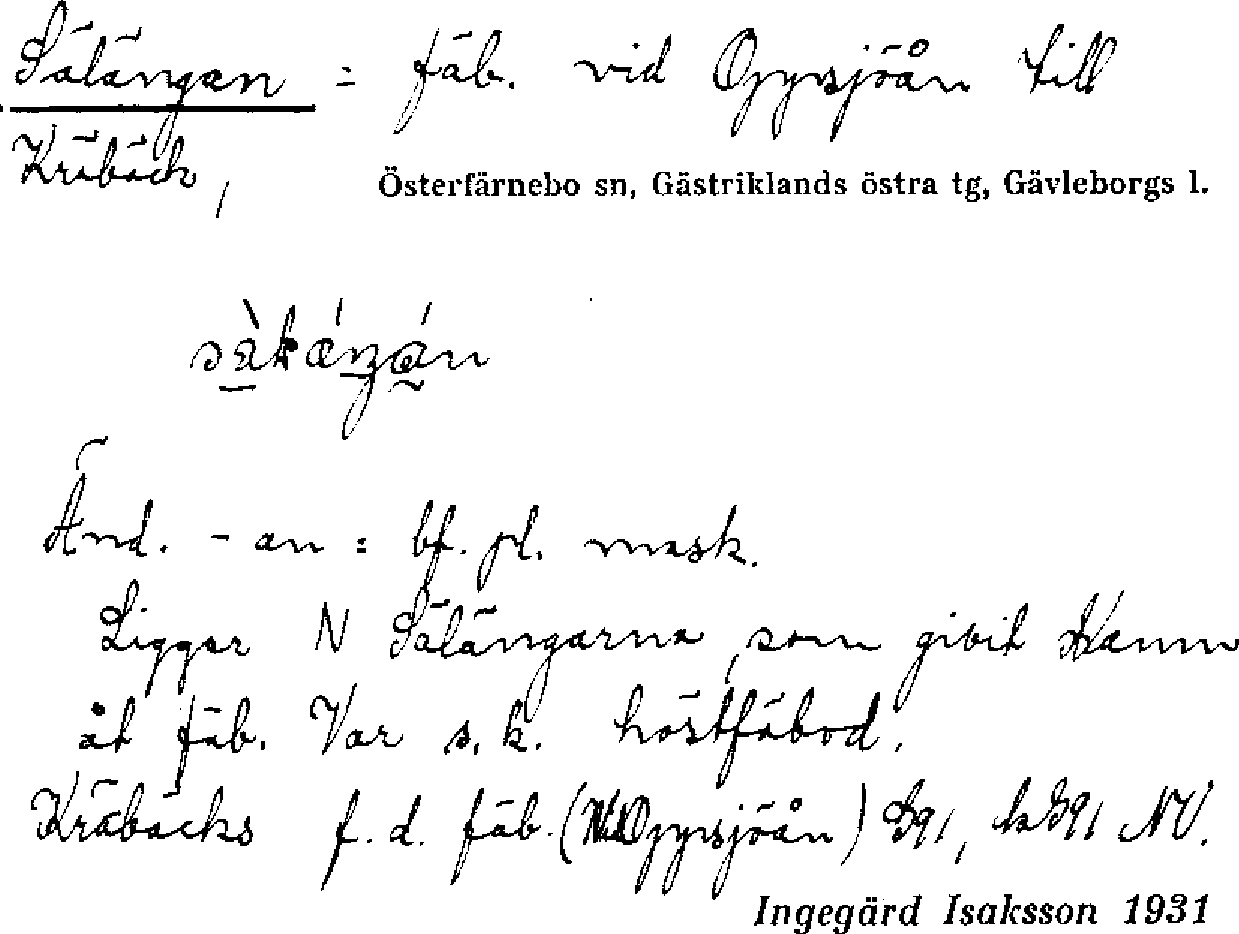 Sälängan = fäb. vid Gysjöån till
Kräbäck,
Österfärnebo sn, Gästriklands östra tg, Gävleborgs l.
Änd. - an = bf. pl. mask.
Ligger N Sälängarna, som givit namn
åt fäb. Var s.k. höstfäbod.
Kräbäcks f.d. fäb. NV.
Ingegärd Isaksson 1931